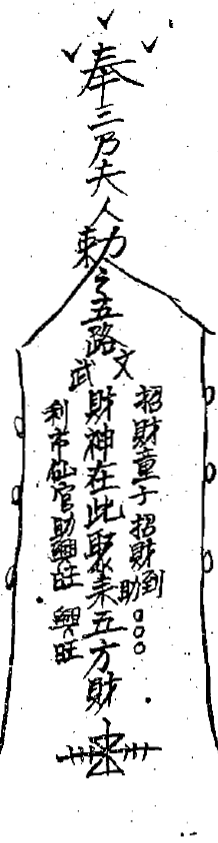 奉三乃夫人勅令五路
文
武
財神在此聚來五方財
招財童子招財到
助○○○
利市仙官助興旺
興旺